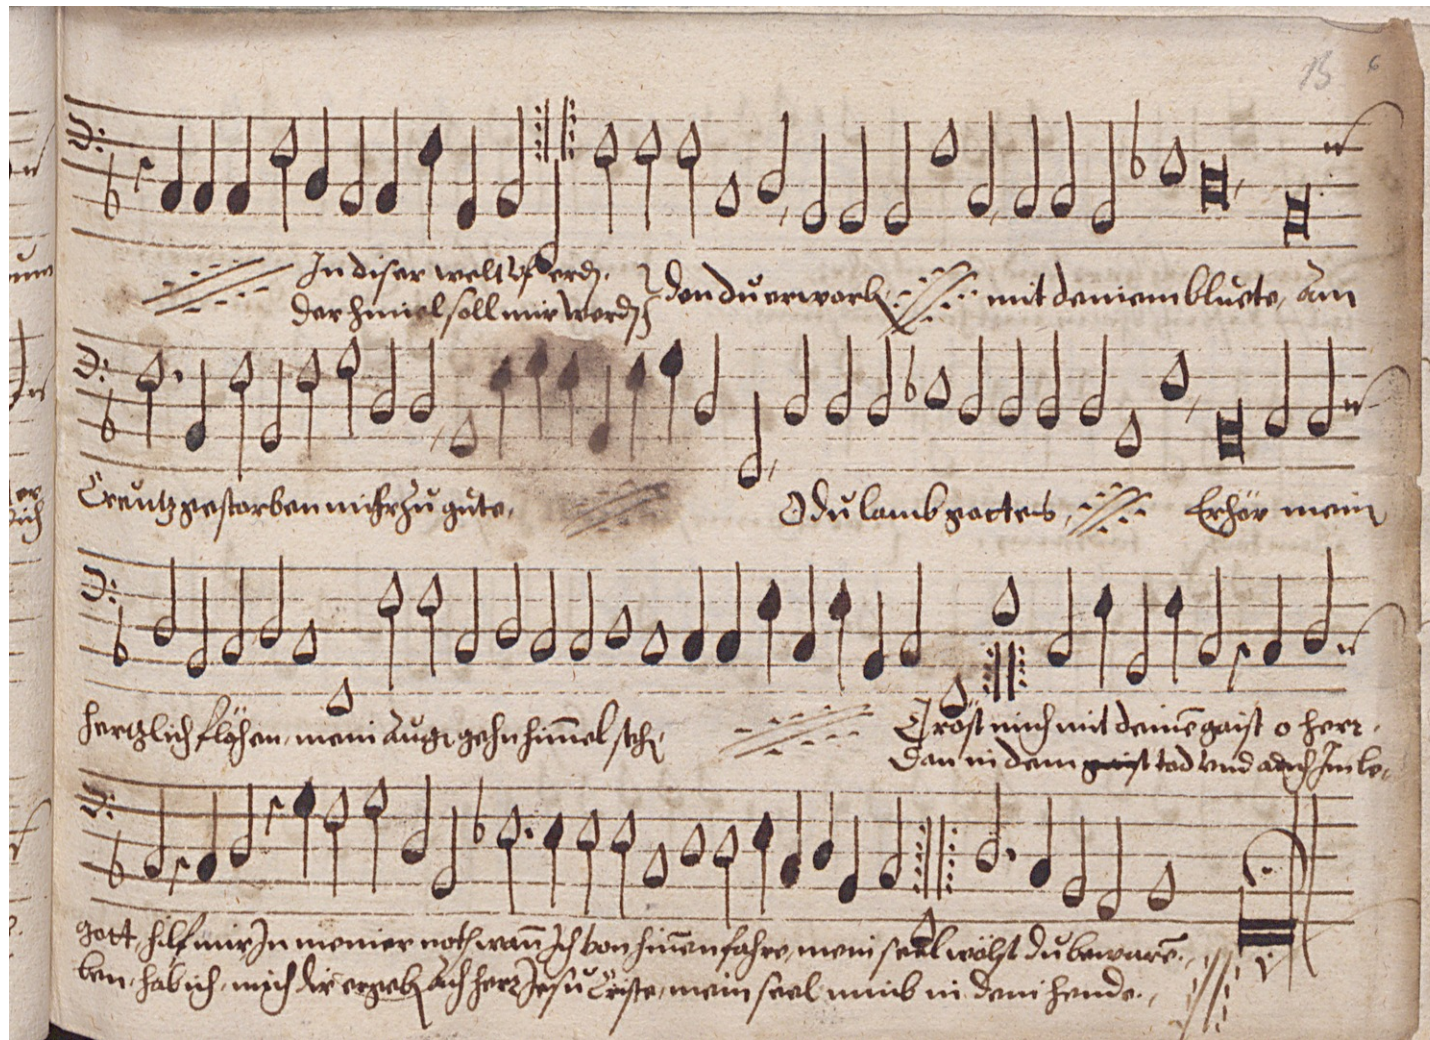 15 6
In diser welt vf erdn. den du erwarb mit deinem bluete, am
der himel soll mir werdn
Creutz gestorben mihr zu gute, O du lamb gottes, Erhör mein
hertzlich flöhen, mein Augn gehn himel sehn Tröst mich mit deinē gaist o herr.
Dan in dem tod vnd auch Im le,
gott, hilf mir In meiner noth wañ Ich von hiñen fahre, mein seel wölst du bewarē.
ben, hab ich mich dir ergebn ach herr Jesu Criste, mein seel nimb in dein hende.